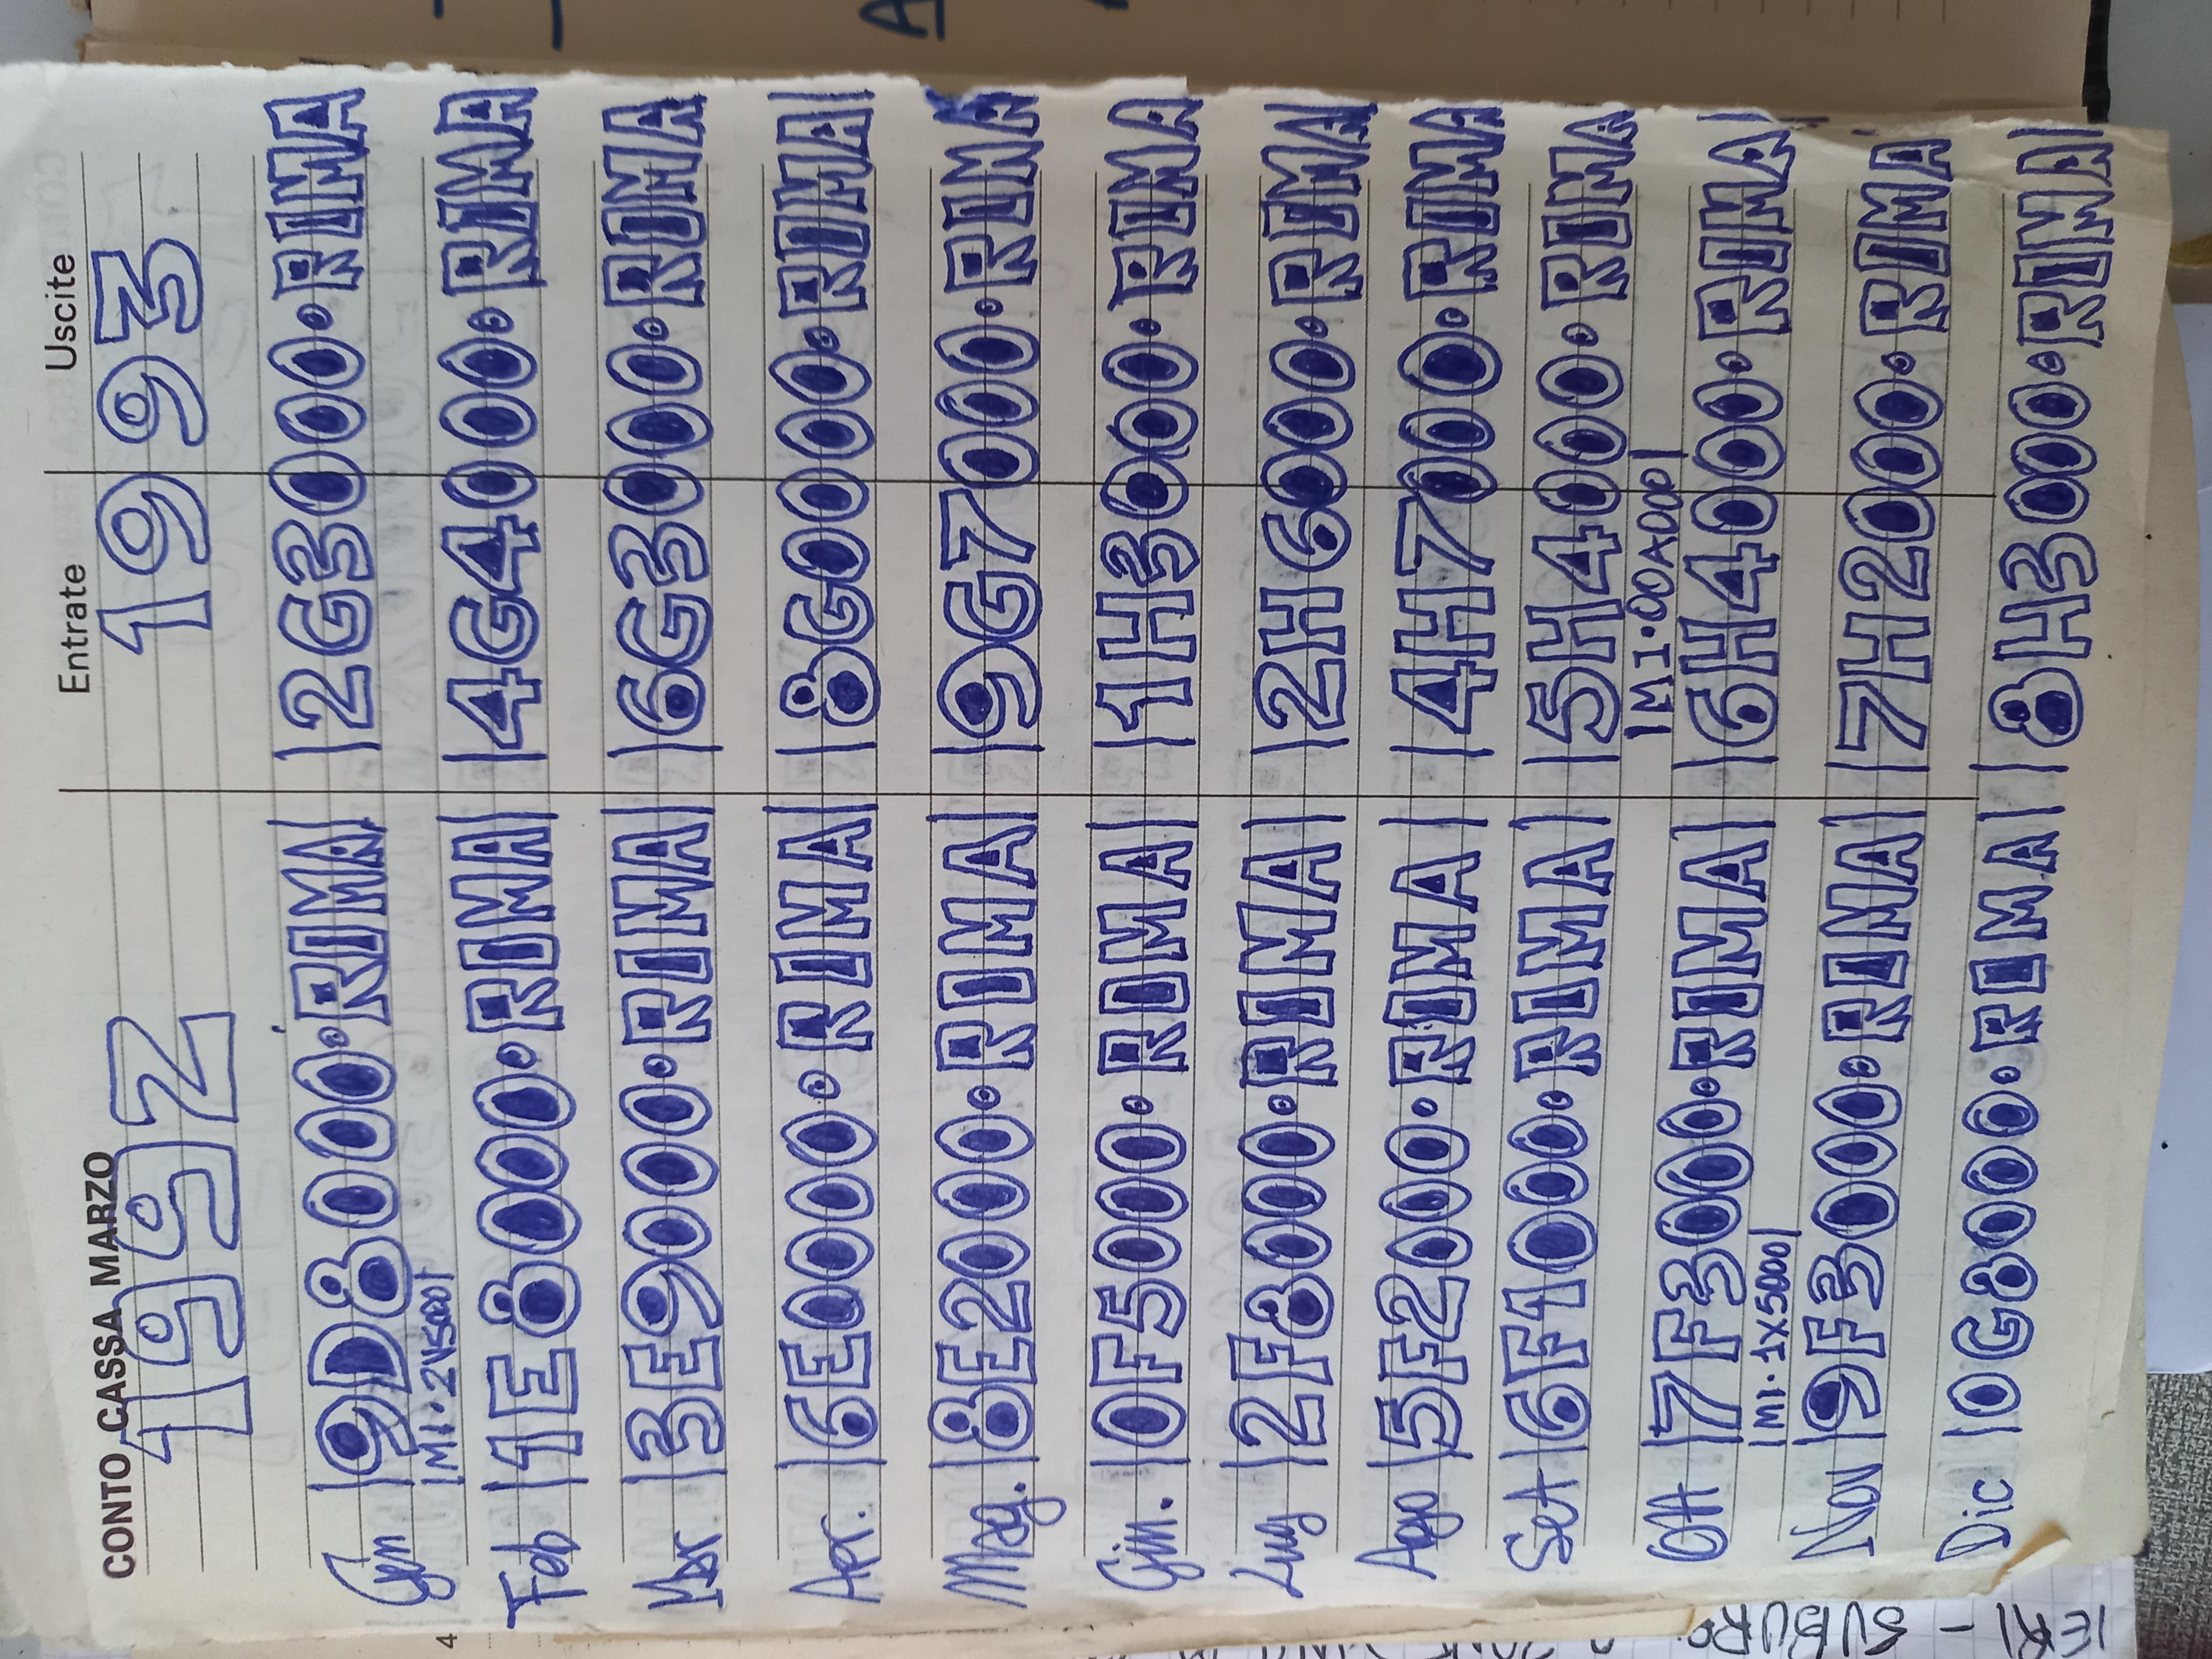 CONTO CASSA MARZO Entrate Uscite
1992 1993
Gen |9D8000·RIMA| |2G3000·RIMA
|M1·2V5000|
Feb |1E8000·RIMA| |4G4000·RIMA
Mar |3E9000·RIMA| |6G3000·RIMA
Apr. |6E0000·RIMA| |8G0000·RIMA|
Mag. |8E2000·RIMA| |9G7000·RIMA
Giu. |0F5000·RIMA| |1H3000·RIMA
Lug |2F8000·RIMA| |2H6000·RIMA|
Ago |5F2000·RIMA| |4H7000·RIMA
Set |6F1000·RIMA| |5H4000·RIMA
|M1·00A000|
Ott |7F3000·RIMA| |6H4000·RIMA|
|M1·1X5000|
Nov |9F3000·RIMA| |7H2000·RIMA
Dic |0G8000·RIMA| |8H3000·RIMA|
4
IERI - SUBURO